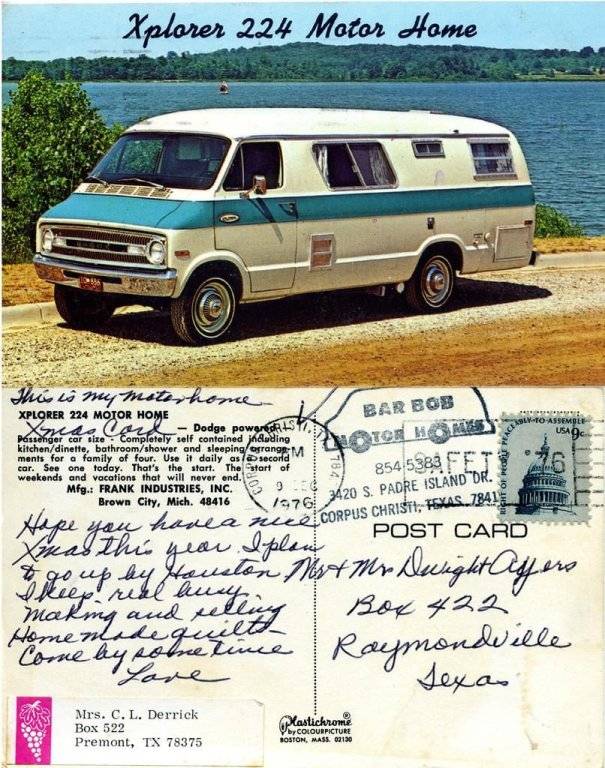 Xplorer 224 Motor Home
This is my motorhome
XPLORER 224 MOTOR HOME
Xmas Card
— Dodge powered —
Passenger car size - Completely self contained including
kitchen/dinette, bathroom/shower and sleeping arrange-
ments for a family of four. Use it daily as a second
car. See one today. That's the start. The start of
weekends and vacations that will never end.
Mfg.: FRANK INDUSTRIES, INC.
Brown City, Mich. 48416
Hope you have a nice
Xmas this year. I plan
to go up by Houston,
I keep real busy
Making and selling
Home made quilts
Come by some time
Love
Mrs. C. L. Derrick
Box 522
Premont, TX 78375
CORPUS CHRISTI, TX 784
PM
9 DEC
1976
BAR BOB
MOTOR HOMES
854-5383
3420 S. PADRE ISLAND DR.
CORPUS CHRISTI, TEXAS 7841
'76
RIGHT OF PEOPLE PEACEABLY TO ASSEMBLE
USA 9c
POST CARD
Mr + Mrs Dwight Ayers
Box 422
Raymondville
Texas
Plastichrome®
by COLOURPICTURE
BOSTON, MASS. 02130